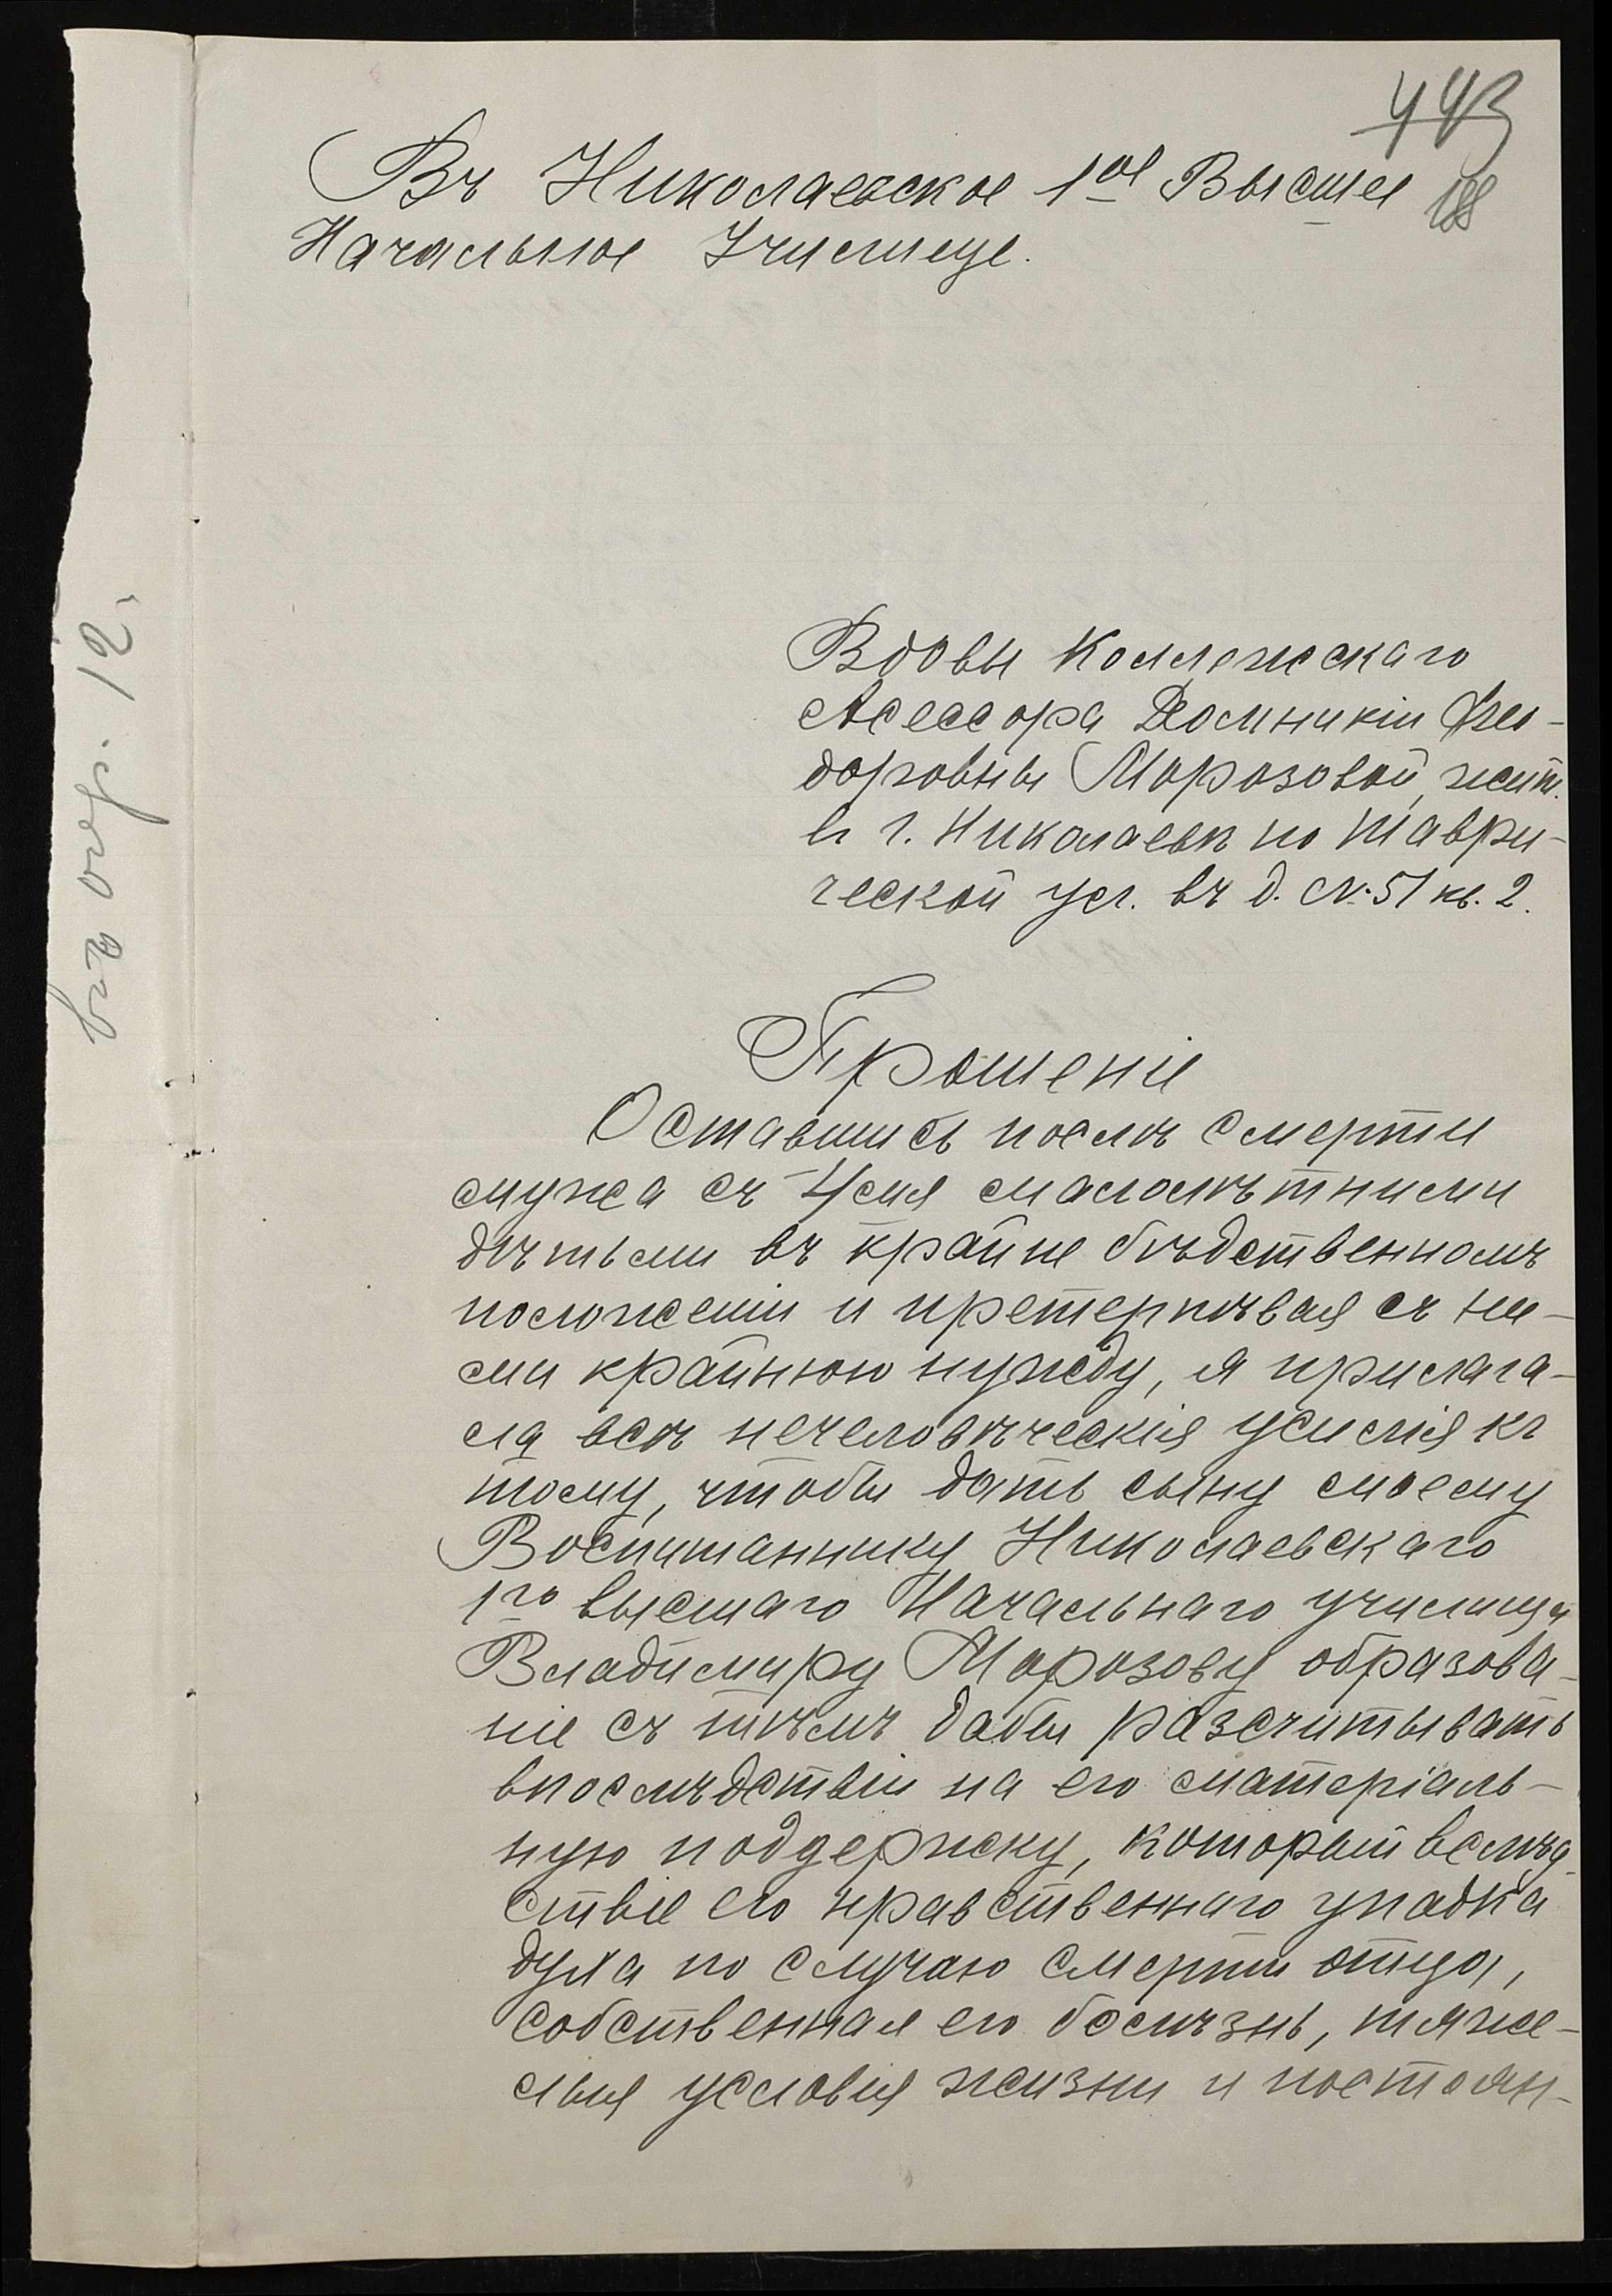 443
Въ Николаевское 1ое Высшее
188
Начальное Училище.
Вдовы Коллежскаго
Асессора Домникіи Фео-
доровны Морозовой, жит.
въ г. Николаевѣ по Таври-
ческой ул. въ д. № 51 кв. 2.
Прошеніе
Оставшись послѣ смерти
мужа съ 4мя малолѣтними
дѣтьми въ крайне бѣдственномъ
положеніи и претерпѣвая съ ни-
ми крайнюю нужду, я прилага-
ла всѣ нечеловѣческія усилія къ
тому, чтобы дать сыну моему
Воспитаннику Николаевскаго
1го высшаго Начальнаго училища
Владимиру Морозову образова-
ніе съ тѣмъ дабы разсчитывать
впослѣдствіи на его матеріаль-
ную поддержку, который вслѣд-
ствіе его нравственнаго упадка
духа по случаю смерти отца,
собственная его болѣзнь, тяже-
лыя условія жизни и постоян-